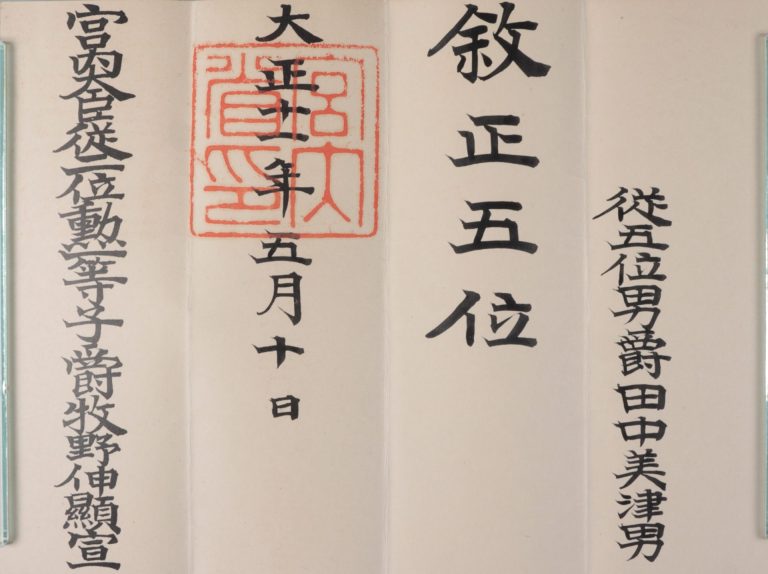 從五位男爵田中美津男
敘正五位
大正十一年五月十日
宮内省印
宮内大臣從二位勲一等子爵牧野伸顯宣